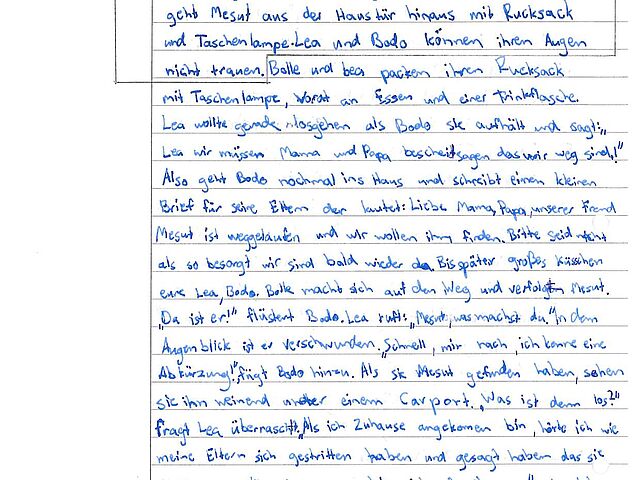 geht Mesut aus der Haustür hinaus mit Rucksack
und Taschenlampe. Lea und Bodo können ihren Augen
nicht trauen. Bolle und bea packen ihren Rucksack
mit Taschenlampe, Vorrat an Essen und einer Trinkflasche.
Lea wollte gerade losgehen als Bodo sie aufhält und sagt:„
Lea wir müssen Mama und Papa bescheidsagen das wir weg sind!"
Also geht Bodo nochmal ins Haus und schreibt einen kleinen
Brief für seine Eltern der lautet: Liebe Mama, Papa, unserer Freund
Mesut ist weggelaufen und wir wollen ihm finden. Bitte seid nicht
als so besorgt wir sind bald wieder da. Bis später großes Küsschen
eure Lea, Bodo. Bolle macht sich auf den Weg und verfolgt Mesut.
„Da ist er!" flüstert Bodo. Lea ruft: „Mesut, was machst du." In dem
Augenblick ist er verschwunden. „Schnell, mir nach, ich kenne eine
Abkürzung!", fügt Bodo hinzu. Als sie Mesut gefunden haben, sehen
sie ihn weinend unter einem Carport. „Was ist denn los?"
fragt Lea überrascht. „Als ich Zuhause angekommen bin, hörte ich wie
meine Eltern sich gestritten haben und gesagt haben das sie